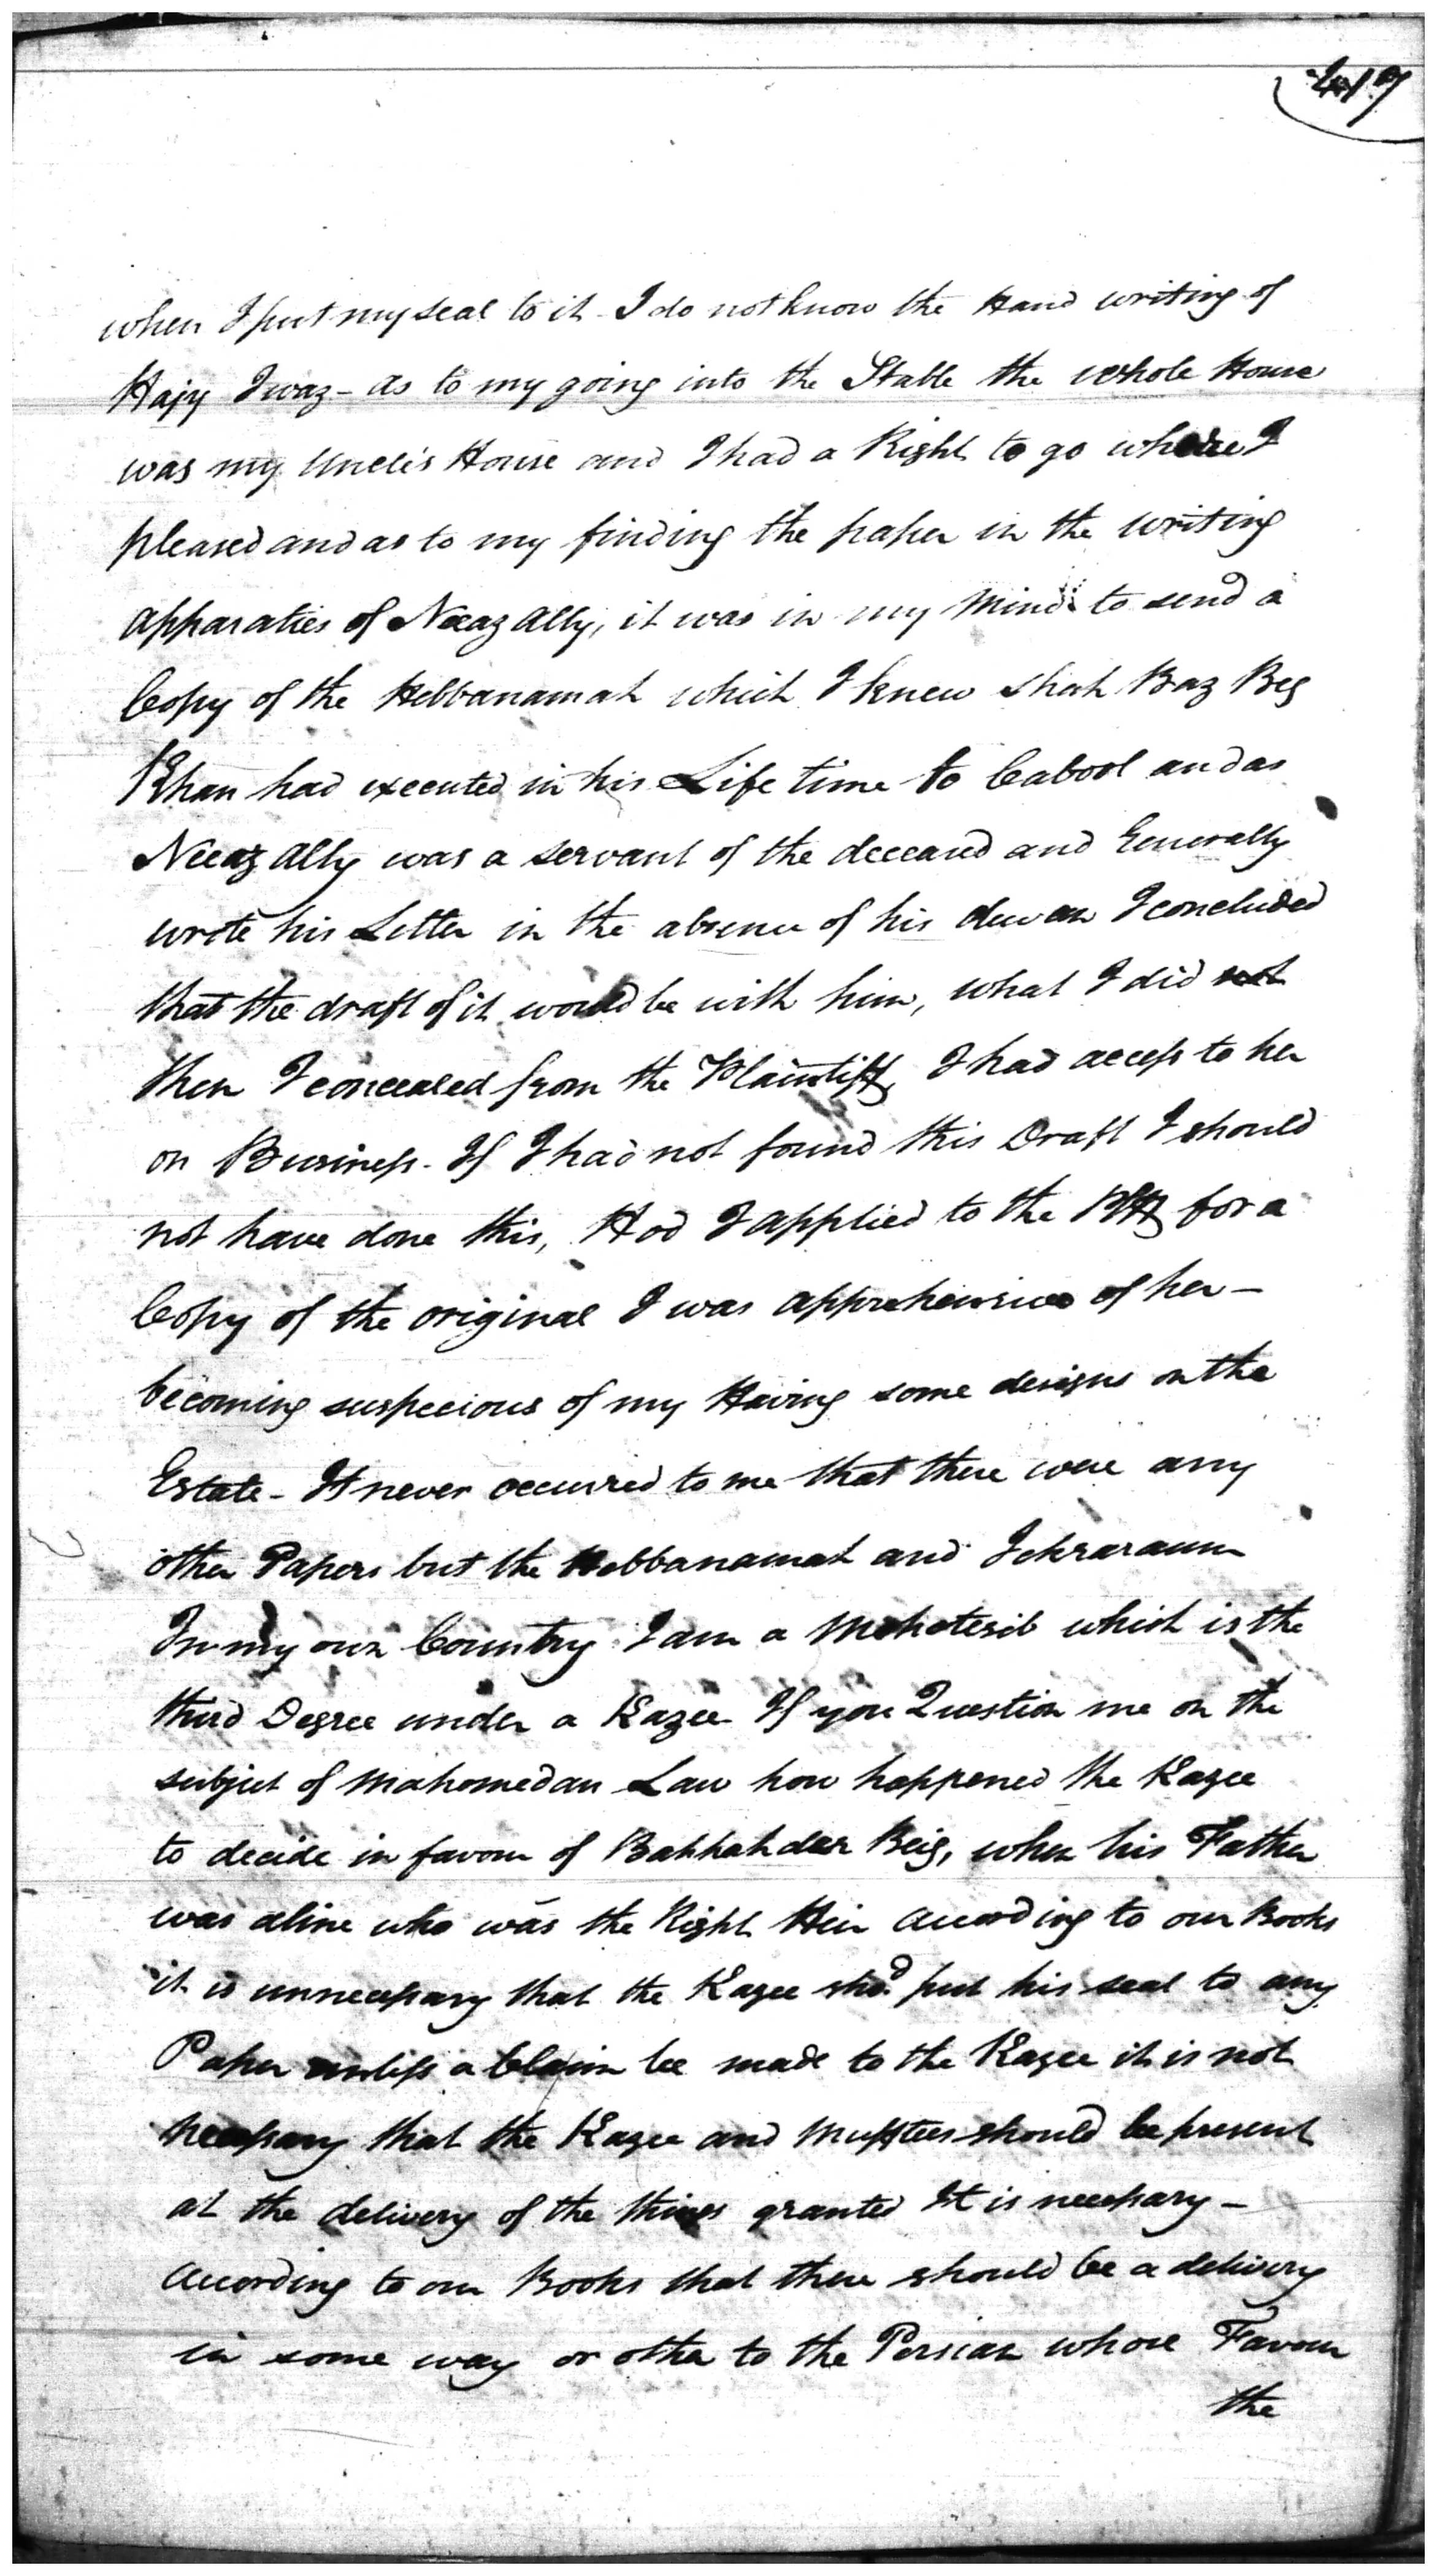 417
when I put my seal to it - I do not know the Hand writing of
Hajy Iwaz - as to my going into the Stable the whole House
was my Uncle's House and I had a Right to go where I
pleased and as to my finding the paper in the writing
apparaties of Neeaz Ally, it was in my Mind to send a
Copy of the Hebbanamah which I knew Shah Baz Beg
Khan had executed in his Life time to Cabool and as
Neeaz Ally was a servant of the deceased and Generally
wrote his Letter in the absence of his dewan I concluded
that the draft of it would be with him, what I did not
then I concealed from the Plaintiff, I had access to her
on Business - If I had not found this Draft I should
not have done this, Had I applied to the Pltff for a
Copy of the original I was apprehensive of her -
becoming suspecious of my Having some designs on the
Estate - It never occurred to me that there were any
other Papers but the Hebbanamah and Jekraraum
In my own Country I am a Mohotesib which is the
third Degree under a Kazee If you Question me on the
subject of Mahomedan Law how happened the Kazee
to decide in favour of Bahhahder Beig, when his Father
was alive who was the Right Heir according to our Books
it is unnecessary that the Kazee shod. put his seal to any
Paper unless a Claim be made to the Kazee it is not
necessary that the Kazee and Muftees should be present
at the delivery of the things granted It is necessary -
according to our Books that there should be a delivery
in some way or other to the Persian whose Favour
the